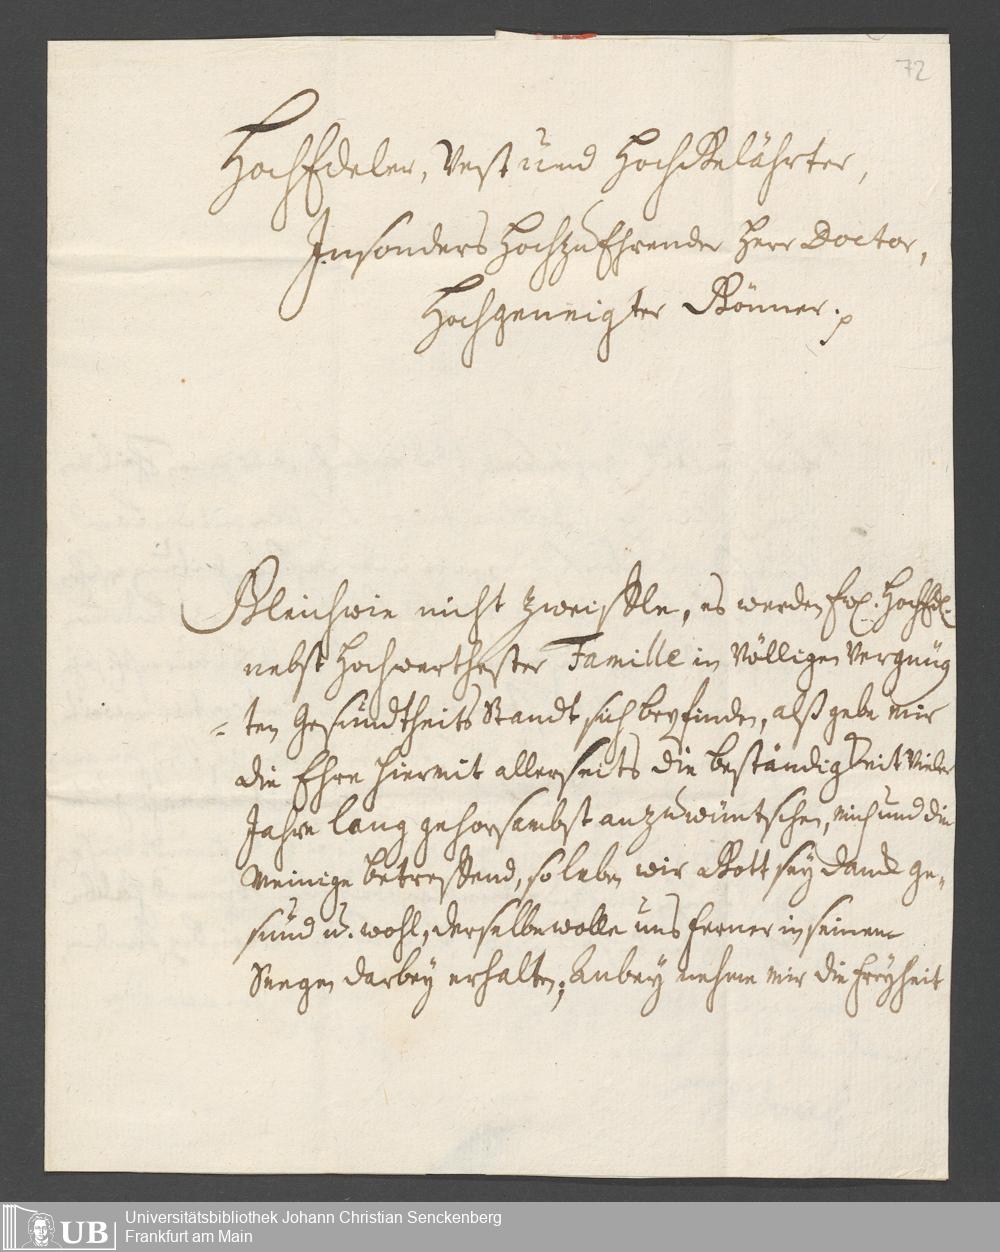 72
HochEdeler, Vest und HochGelährter,
Insonders HochzuEhrender Herr Doctor,
Hochgeneigter Gönner. p
Gleichwie nicht zweiffle, es werden Ew. HochEdl.
nebst Hochwerthester Familie in Völligen Vergnüg
= ten Gesundtheits Standt sich befinden, alß gebe mir
die Ehre hiermit allerseits die beständigkeit Vieler
Jahre lang gehorsambst anzuwüntschen, mich und die
Meinige betreffend, so leben wir Gott sey danck ge-
sund u. wohl, derselbe wolle uns ferner in seinem
Seegen darbey erhalten; Anbey nehme mir die freyheit
UB
Universitätsbibliothek Johann Christian Senckenberg
Frankfurt am Main